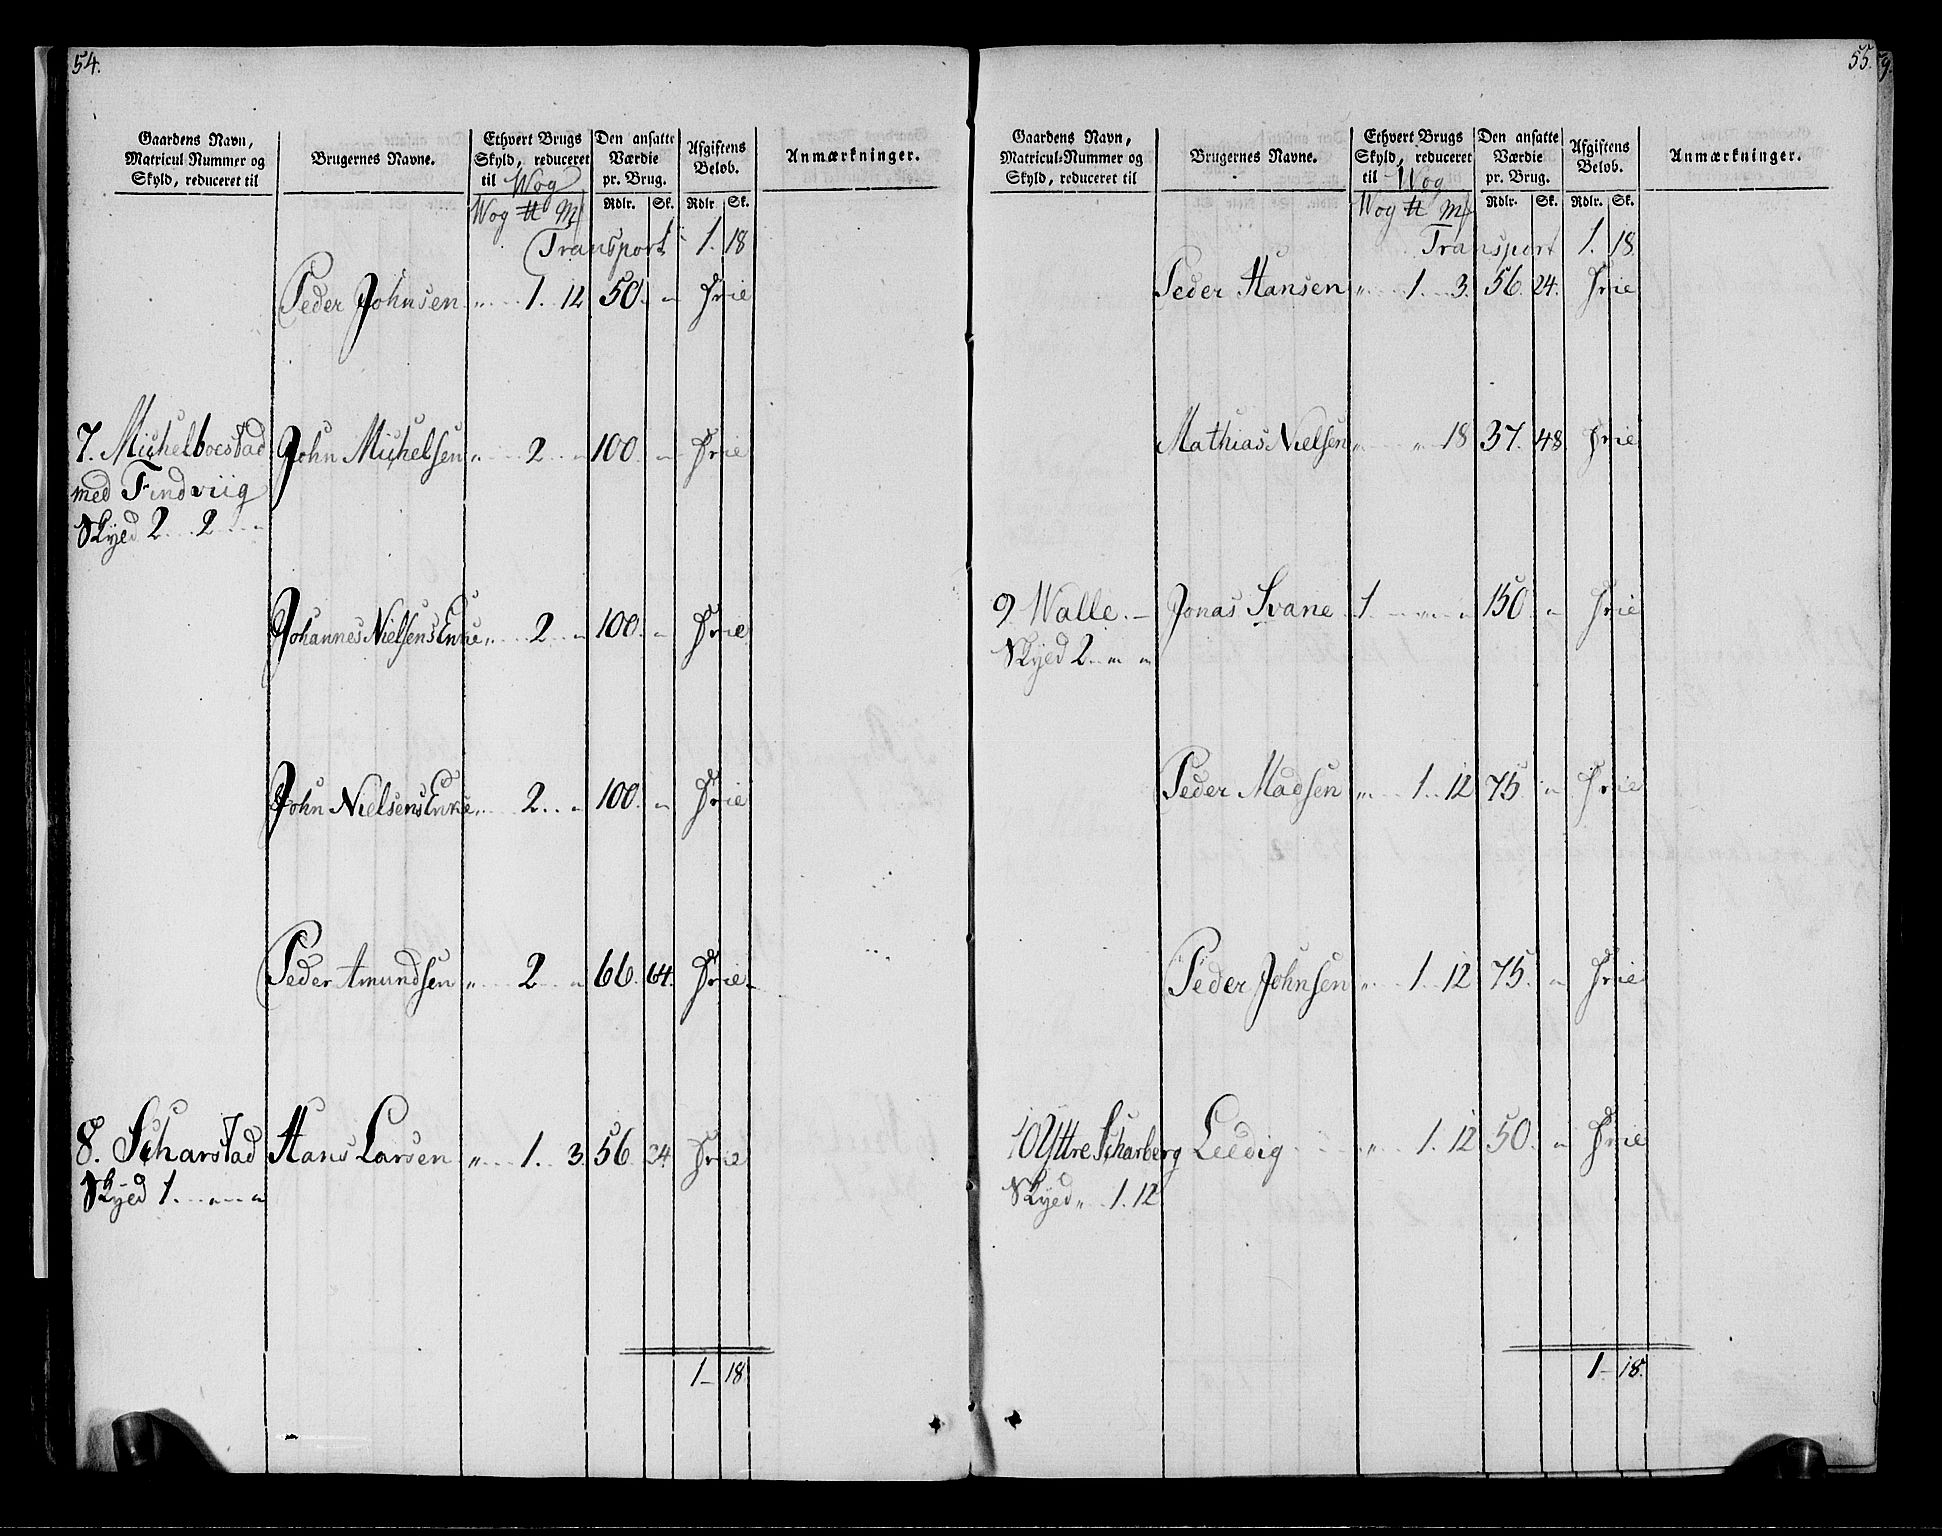 54.
Gaardens Navn, Matricul-Nummer og Skyld, reduceret til | Brugernes Navne. | Ethvert Brugs Skyld, reduceret til Wog | Den ansatte Værdie pr. Brug. | Afgiftens Beløb. | Anmærkninger.
Wog ℔ Mk | Rdlr. Sk. | Rdlr. Sk.
Transport 1. 18
Peder Johnsen „ 1. 12 50. „ Frie
7. Michelboestad John Michelsen „ 2 „ 100. „ Frie
med Findviig
Skyld 2 2 „
Johannes Nielsens Enke „ 2 „ 100. „ Frie
John Nielsens Enke „ 2 „ 100. „ Frie
Peder Amundsen „ 2 „ 66. 64. Frie
8. Scharstad Hans Larsen „ 1. 3. 56. 24. Frie
Skyld 1. „ „
1 – 18.
55.
Gaardens Navn, Matricul-Nummer og Skyld, reduceret til | Brugernes Navne. | Ethvert Brugs Skyld, reduceret til Wog | Den ansatte Værdie pr. Brug. | Afgiftens Beløb. | Anmærkninger.
Wog ℔ Mk | Rdlr. Sk. | Rdlr. Sk.
Transport 1. 18.
Peder Hansen „ 1. 3. 56. 24. Frie
Mathias Nielsen „ „ 18 37. 48 Frie
9. Walle. – Jonas Svane 1. „ „ 150. „ Frie
Skyld 2. „ „
Peder Madsen „ 1. 12 75. „ Frie
Peder Johnsen „ 1. 12 75. „ Frie
10 Yttre Scharberg Leedig „ 1. 12 50. „ Frie
Skyld „ 1. 12
1 – 18.